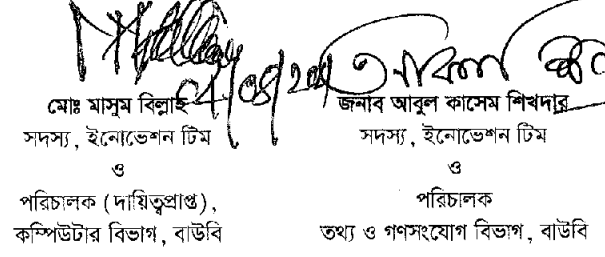 মোঃ মাসুম বিল্লাহ
সদস্য, ইনোভেশন টিম
ও
পরিচালক (দায়িত্বপ্রাপ্ত),
কম্পিউটার বিভাগ, বাউবি
জনাব আবুল কাসেম শিখদার
সদস্য, ইনোভেশন টিম
ও
পরিচালক
তথ্য ও গণসংযোগ বিভাগ, বাউবি